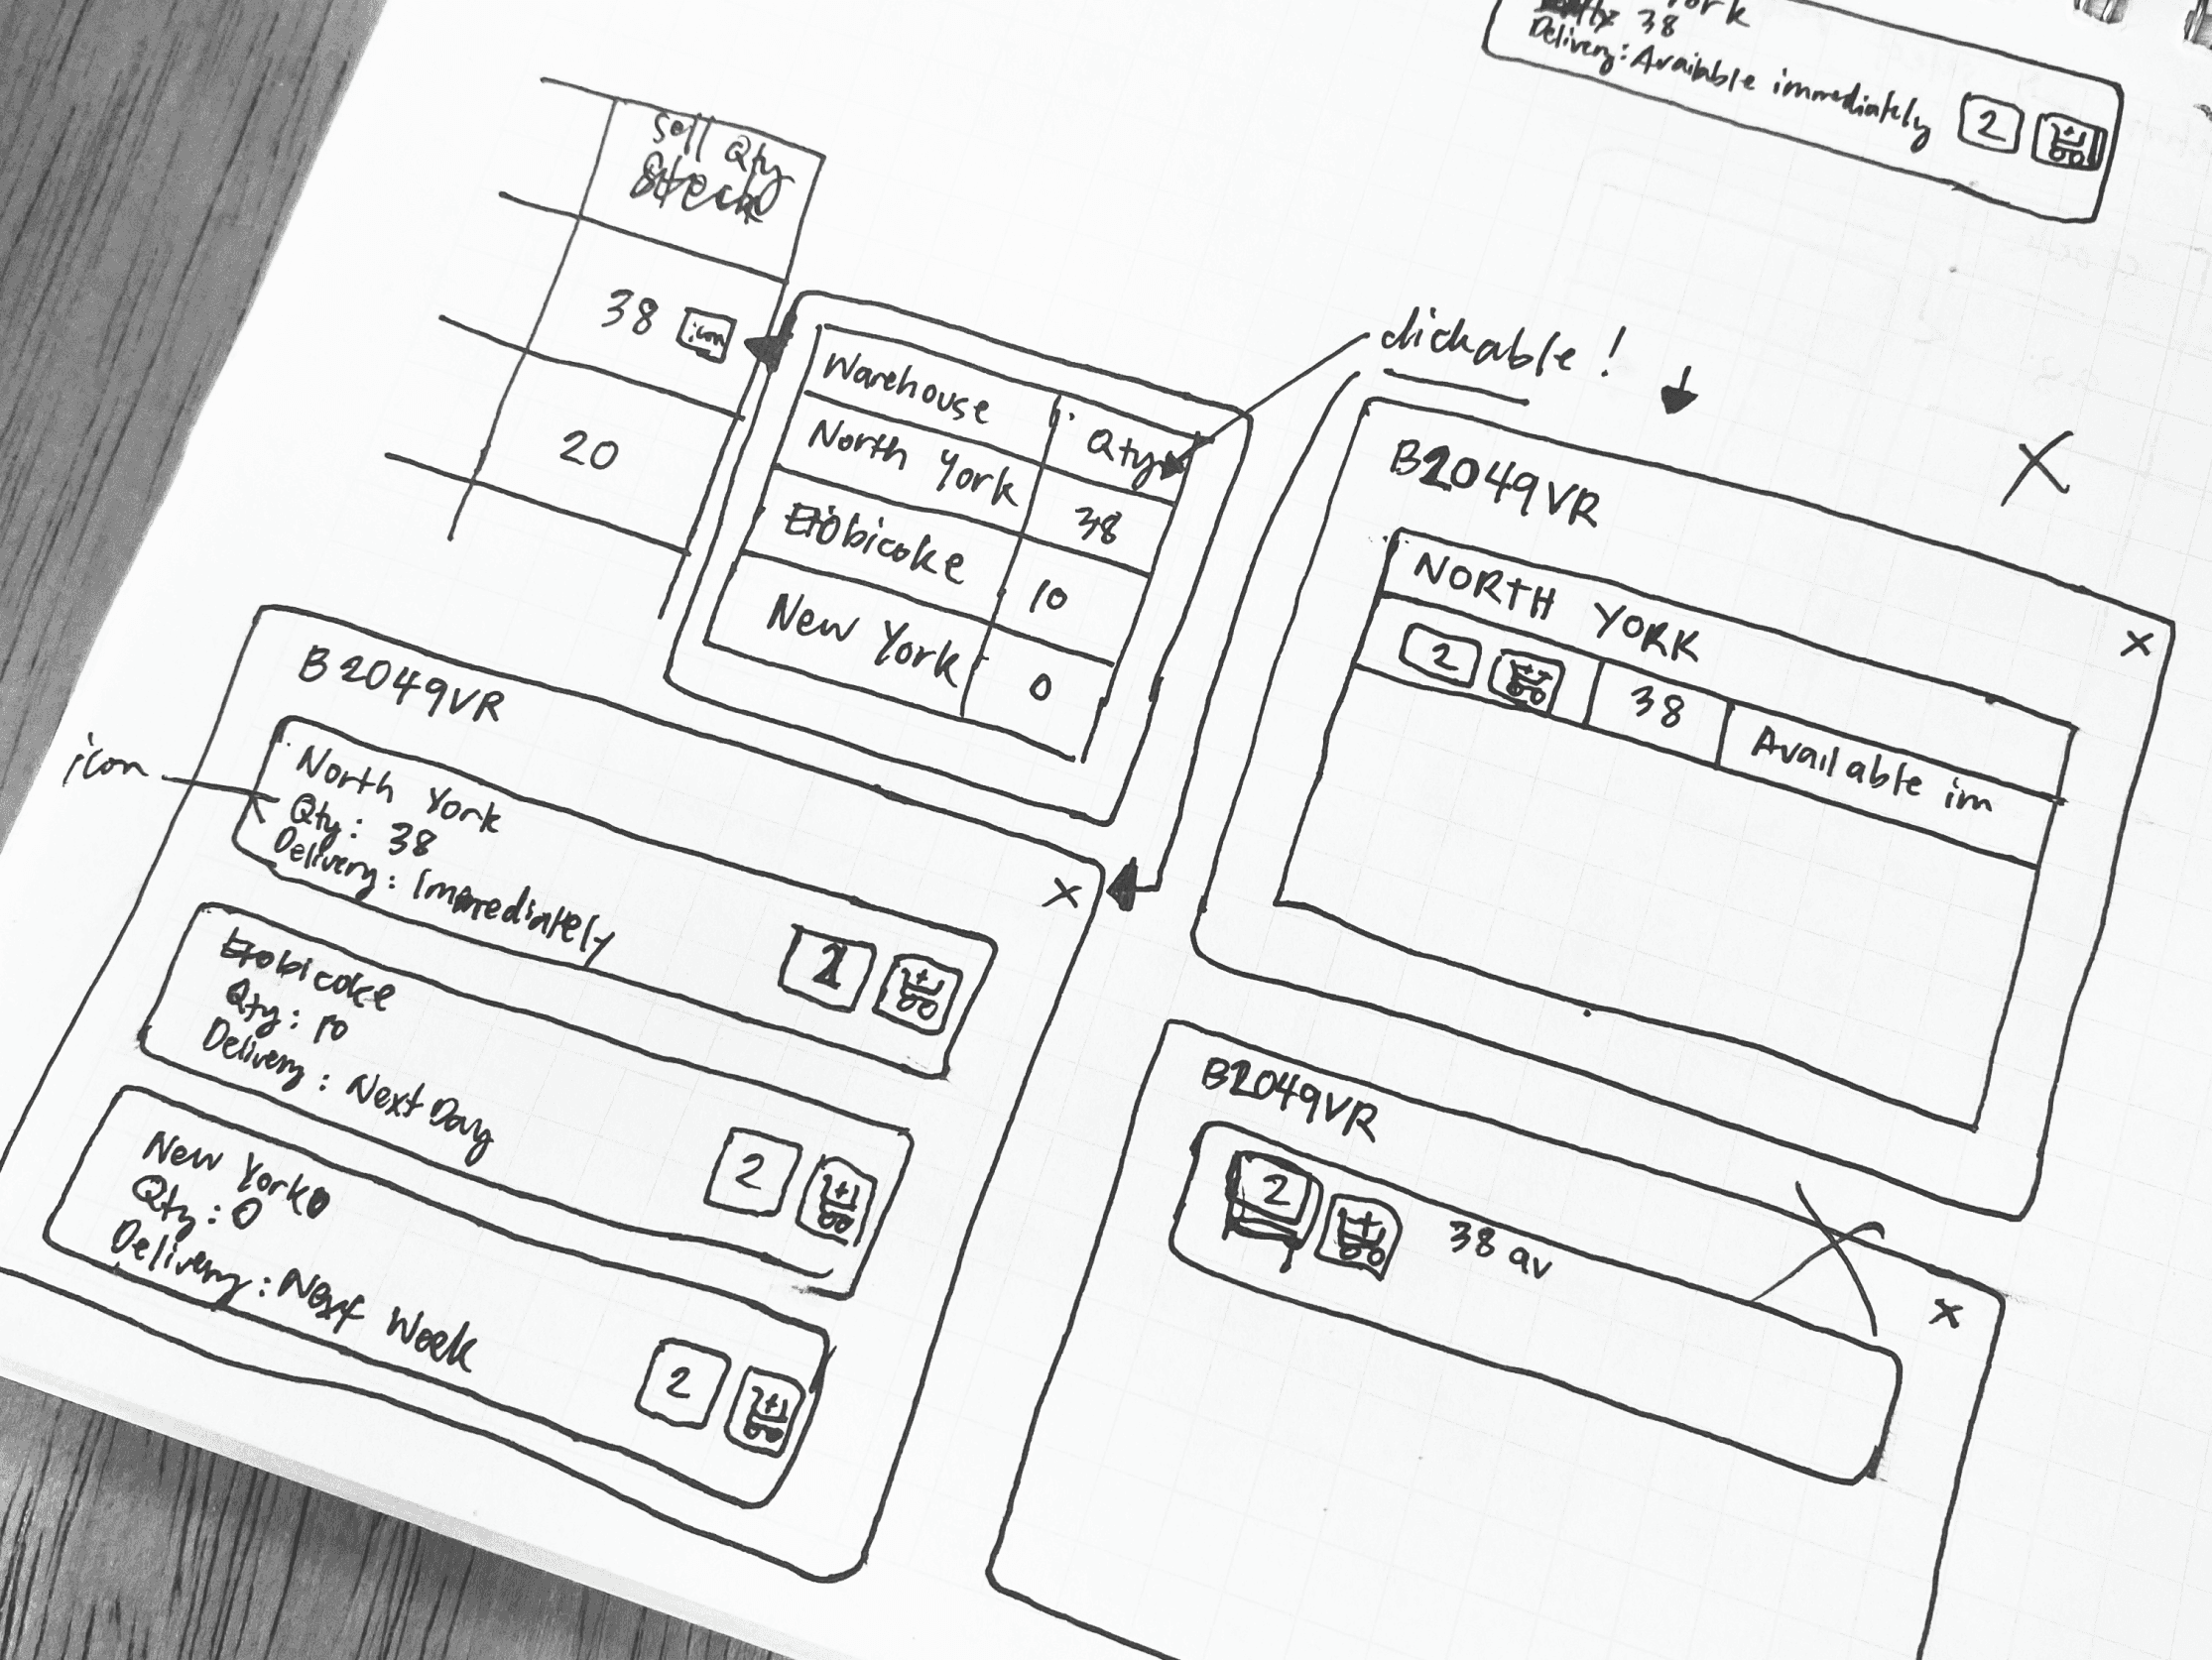 38
Delivery: Available immediately
2
Sell Qty
Stock
38 icon
20
Warehouse Qty
North York 38
Etobicoke 10
New York 0
clickable!
B2049VR
NORTH YORK
2 38 Available im
x
B2049VR
icon
North York
Qty: 38
Delivery: Immediately
x
Etobicoke
Qty: 10
Delivery: Next Day
2
New York
Qty: 0
Delivery: Next Week
2
B2049VR
2 38 av
x